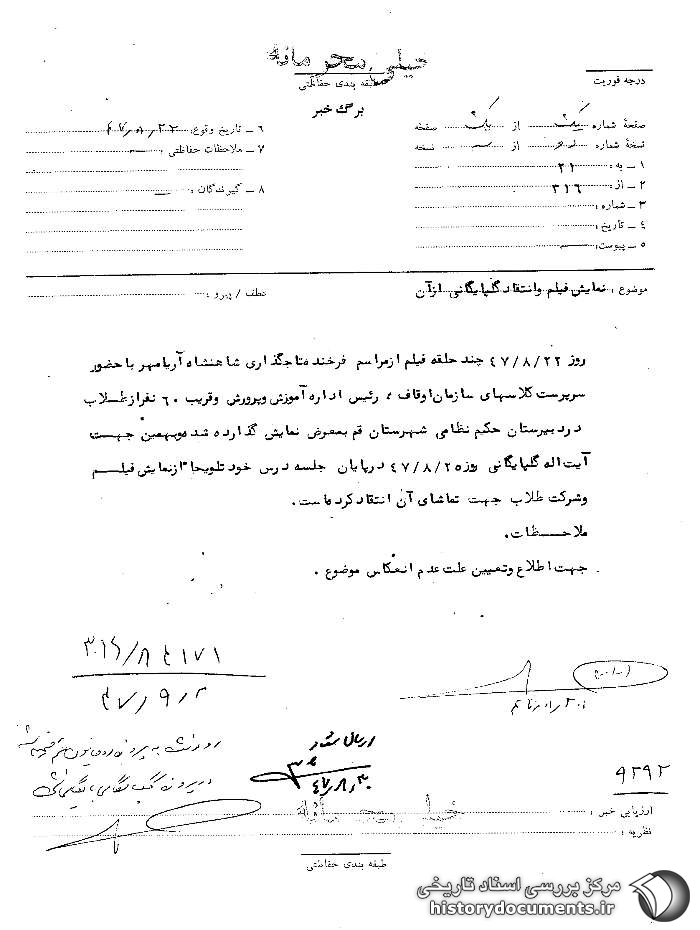 خیلی محرمانه
طبقه بندی حفاظتی
درجه فوریت
برگ خبر
صفحهٔ شماره یک از یک صفحه
نسخهٔ شماره از نسخه
۱ ــ به : ۲۱
۲ ــ از : ۳۱۶
۳ ــ شماره :
۴ ــ تاریخ :
۵ ــ پیوست :
۶ ــ تاریخ وقوع : ۴۷/۸/۲۲
۷ ــ ملاحظات حفاظتی :
۸ ــ گیرندگان :
موضوع : نمایش فیلم وانتقاد گلپایگانی ازآن
عطف / پیرو :
روز ۴۷/۸/۲۲ چند حلقه فیلم ازمراسم فرخنده تاجگذاری شاهنشاه آریامهر با حضور
سرپرست کلاسهای سازمان اوقاف ، رئیس اداره آموزش وپرورش وقریب ۶۰ نفر از طلاب
در دبیرستان حکیم نظامی شهرستان قم بمعرض نمایش گذارده شد وبهمین جهت
آیت اله گلپایگانی روز ۴۷/۸/۲۵ درپایان جلسه درس خود تلویحا" از نمایش فیلم
وشرکت طلاب جهت تماشای آن انتقاد کرده است .
ملاحظات .
جهت اطلاع وتعیین علت عدم انعکاس موضوع .
۴۷/۹/۲
ارسال شد
۴۷/۸/۳۰
۹۲۹۲
ارزیابی خبر :
خیلی محرمانه
نظریه :
طبقه بندی حفاظتی
مرکز بررسی اسناد تاریخی
historydocuments.ir